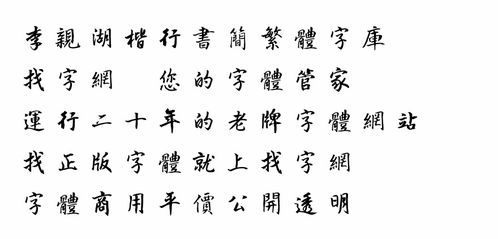 李親湖楷行書簡繁體字庫
找字網 您的字體管家
運行二十年的老牌字體網站
找正版字體就上找字網
字體商用平價公開透明